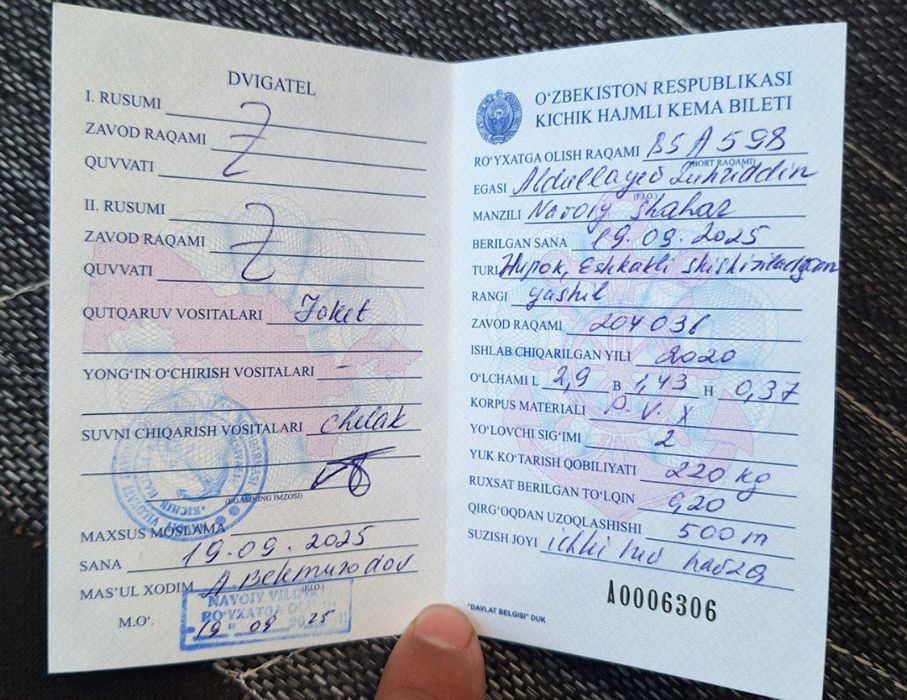 DVIGATEL
I. RUSUMI
ZAVOD RAQAMI
QUVVATI
II. RUSUMI
ZAVOD RAQAMI
QUVVATI
QUTQARUV VOSITALARI Jaket
YONG‘IN O‘CHIRISH VOSITALARI -
SUVNI CHIQARISH VOSITALARI Chelak
(EGASINING IMZOSI)
MAXSUS MOSLAMA
SANA 19.09.2025
MAS’UL XODIM A Bekmurodov
(F.I.O.)
M.O‘.
NAVOIY VILOYA
RO‘YXATGA OLI
19 09 2025
O‘ZBEKISTON RESPUBLIKASI
KICHIK HAJMLI KEMA BILETI
RO‘YXATGA OLISH RAQAMI 85 A 598
(BORT RAQAMI)
EGASI Abdullayev Zuhriddin
(F.I.O.)
MANZILI Navoiy shahar
BERILGAN SANA 19.09.2025
TURI Нырок, Eshkakli shishiriladigan
RANGI yashil
ZAVOD RAQAMI 204036
ISHLAB CHIQARILGAN YILI 2020
O‘LCHAMI L 2,9 B 1,43 H 0,37
KORPUS MATERIALI P.V.X
YO‘LOVCHI SIG‘IMI 2
YUK KO‘TARISH QOBILIYATI 220 kg
RUXSAT BERILGAN TO‘LQIN 0,20
QIRG‘OQDAN UZOQLASHISHI 500 m
SUZISH JOYI ichki suv havza
A0006306
"DAVLAT BELGISI" DUK